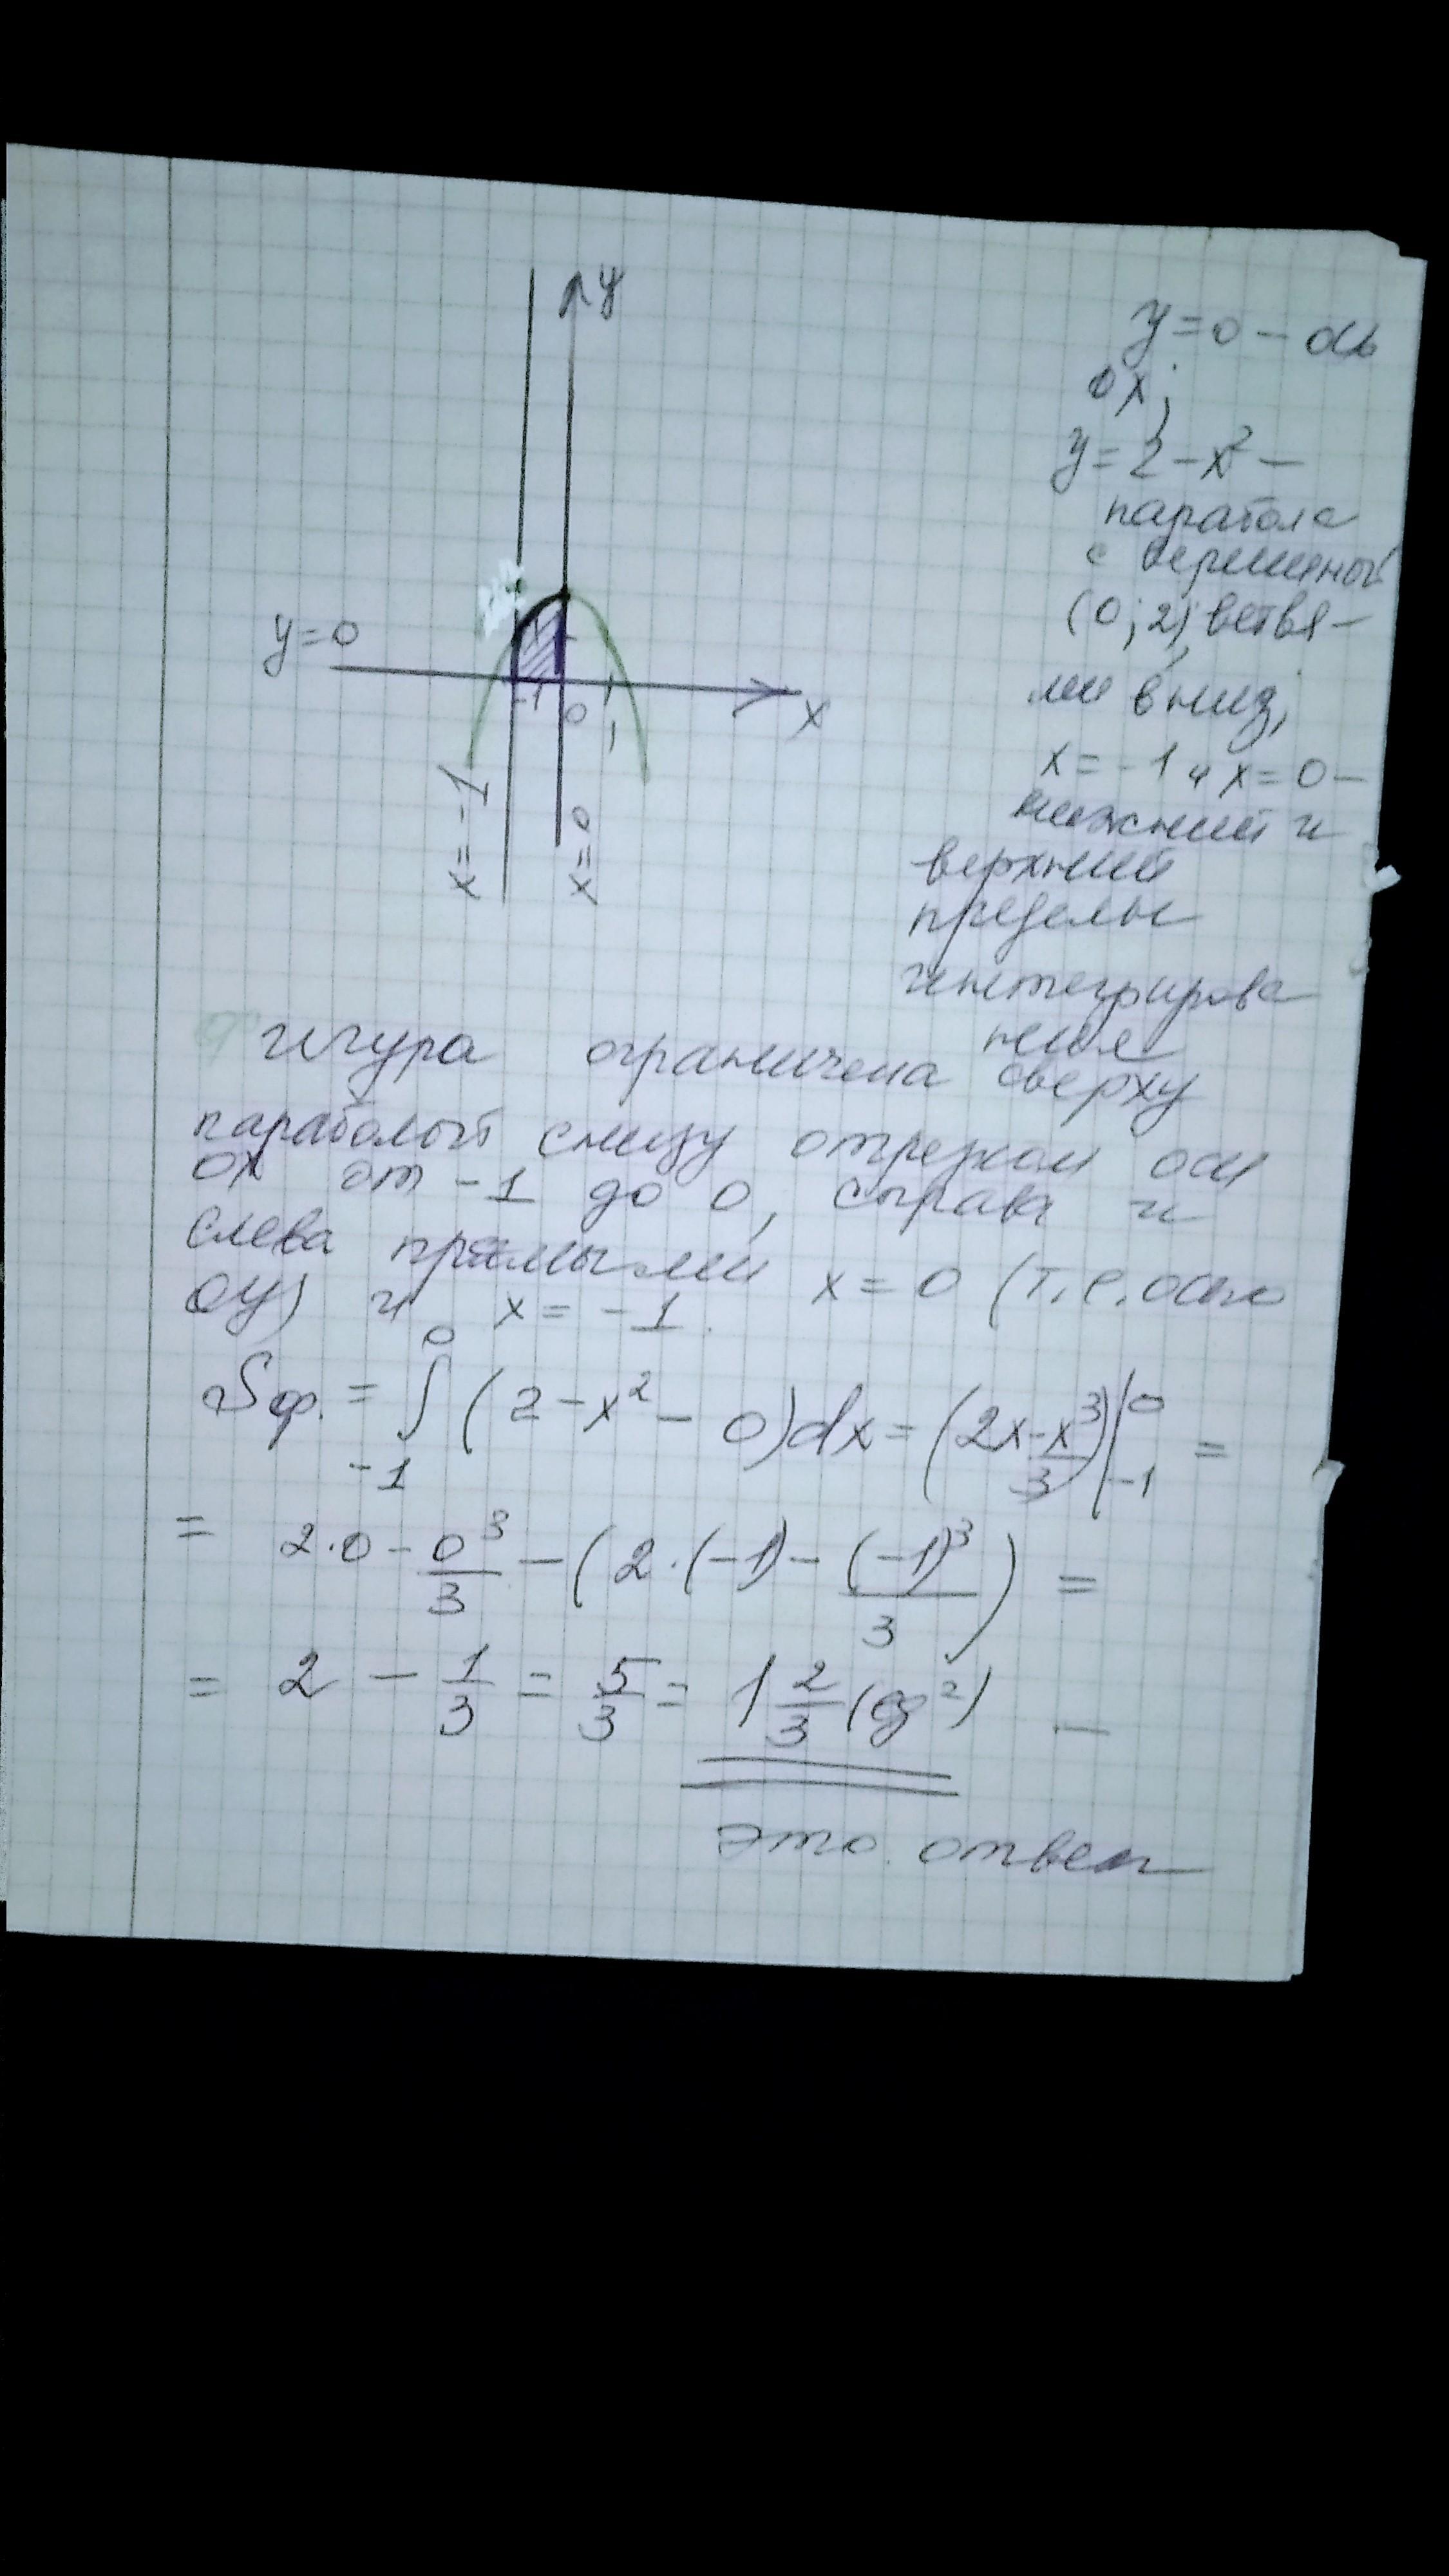 y
y=0
-1
0
x
x=-1
x=0
y=0 – ось
ох;
y=2-x² –
парабола
с вершиной
(0;2), ветвя-
ми вниз,
x=-1 и x=0 –
нижний и
верхний
пределы
интегрирова
ния
Фигура ограничена сверху
параболой снизу отрезком оси
ОХ от -1 до 0, справа и
слева прямыми x=0 (т.е. осью
ОУ) и x=-1.
Sф. = ∫₋₁⁰ (2-x²-0)dx = (2x-x³/3)|₋₁⁰ =
= 2·0 - 0³/3 - (2·(-1) - (-1)³/3) =
= 2 - 1/3 = 5/3 = 1 2/3 (ед²) –
это ответ